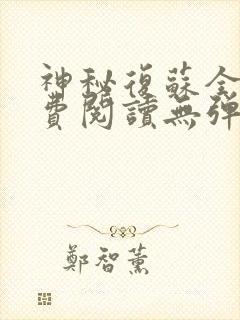 神秘復蘇全
費閱讀無彈
鄭智薰